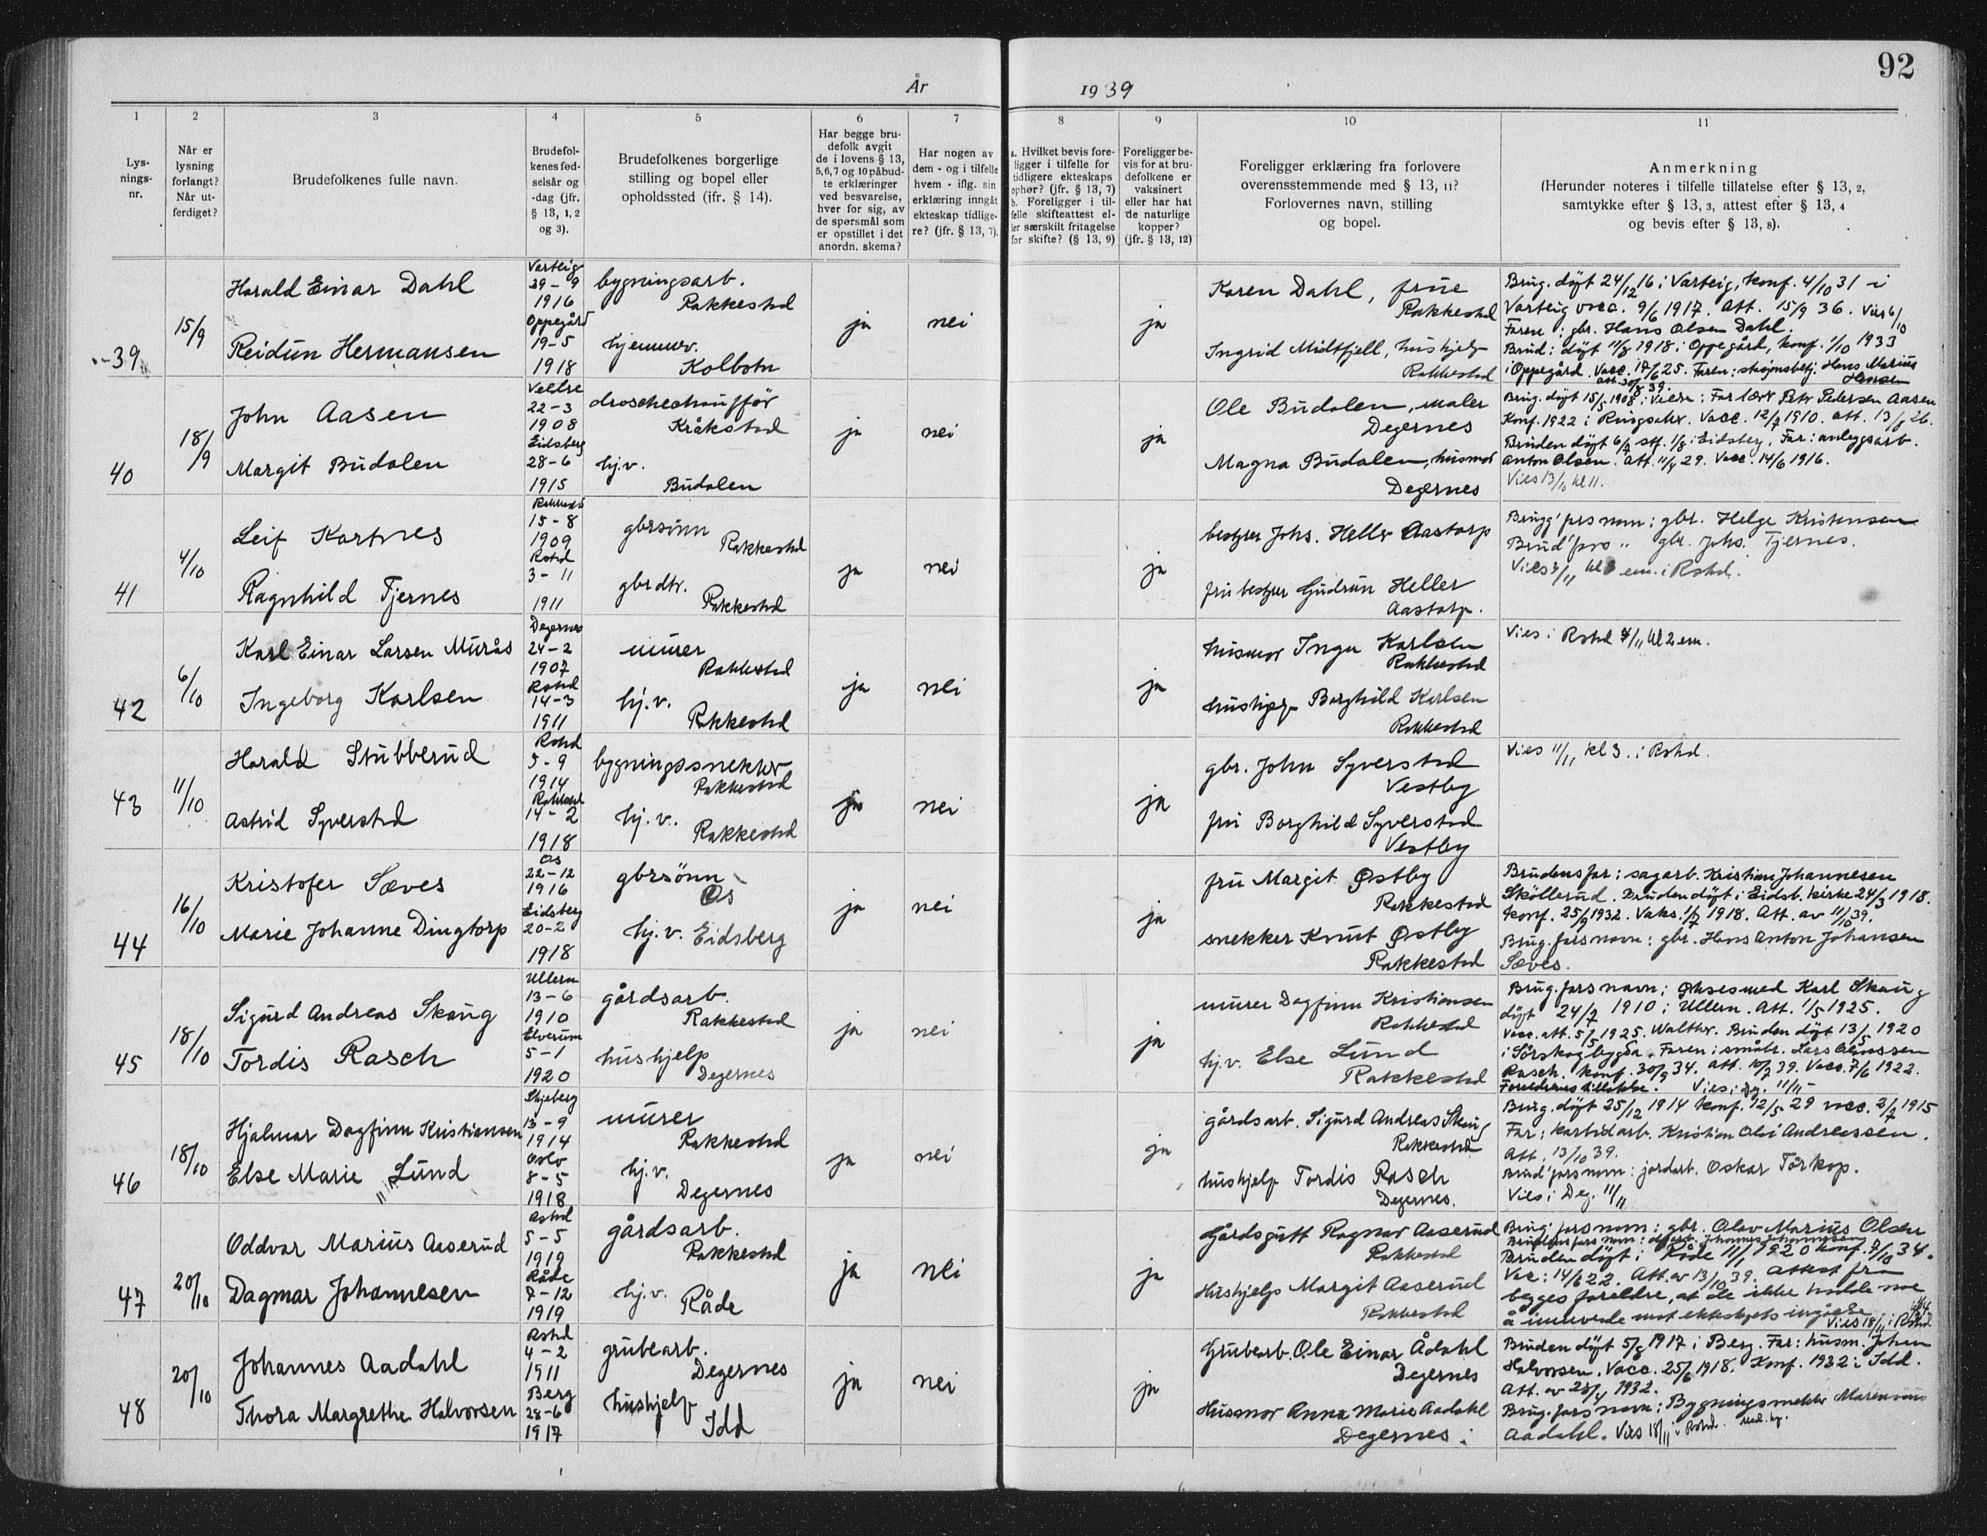 92
År 1939
1
2
3
4
5
6
7
8
9
10
11
Lys-
nings-
nr.
Når er
lysning
forlangt?
Når ut-
ferdiget?
Brudefolkenes fulle navn.
Brudefol-
kenes fød-
selsår og
-dag (jfr.
§ 13, 1, 2
og 3).
Brudefolkenes borgerlige
stilling og bopel eller
opholdssted (jfr. § 14).
Har begge bru-
defolk avgit
de i lovens § 13,
5,6,7 og 10 påbud-
te erklæringer
ved besvarelse,
hver for sig, av
de spørsmål som
er opstillet i det
anordn. skema?
Har nogen av
dem - og i tilfelle
hvem - iflg. sin
erklæring inngått
ekteskap tidlige-
re? (jfr. § 13, 7).
a. Hvilket bevis fore-
ligger i tilfelle for
tidligere ekteskaps
ophør? (jfr. § 13, 7)
b. Foreligger i til-
felle skifteattest el-
ler særskilt fritagelse
for skifte? (§ 13, 9)
Foreligger be-
vis for at bru-
defolkene er
vaksinert
eller har hat
de naturlige
kopper?
(jfr. § 13, 12)
Foreligger erklæring fra forlovere
overensstemmende med § 13, 11?
Forlovernes navn, stilling
og bopel.
Anmerkning
(Herunder noteres i tilfelle tillatelse efter § 13, 2,
samtykke efter § 13, 3, attest efter § 13, 4
og bevis efter § 13, 8).
39
15/9
Harald Einar Dahl
Reidun Hermansen
Varteig
29-9
1916
Oppegård
19-5
1918
bygningsarb.
Rakkestad
hjemmev.
Kolbotn
ja
nei
ja
Karen Dahl, frue
Rakkestad
Ingrid Midtfjell, hushjelp
Rakkestad
Brug. døpt 24/12 16 i Varteig, konf. 4/10 31 i
Varteig vacc. 9/6 1917. Att. 15/9 36. Vies 6/10
Faren: gbr. Hans Olsen Dahl.
Brud: døpt 11/8 1918 i Oppegård, konf. 1/10 1933
i Oppegård. Vacc. 17/6 25. Faren: stasjonsbetj. Hans Marius
Hansen
att. 30/8 39.
40
18/9
John Aasen
Margit Budalen
Veldre
22-3
1908
Eidsberg
28-6
1915
droschechauffør
Kråkstad
hj.v.
Budalen
ja
nei
ja
Ole Budalen, maler
Degernes
Magna Budalen, husmor
Degernes
Brug. døpt 15/5 1908 i Far Petr Pedersen Aasen
Konf. 1922 i Ringsaker. Vacc. 12/7 1910. att. 13/8 26.
Bruden døpt 6/7 stf. 1/8 i Eidsberg. Far: anleggsarb.
Anton Olsen. Att. 11/4 29. Vacc. 14/6 1916.
Vies 13/10 kl 11.
41
4/10
Leif Kartnes
Ragnhild Tjernes
Rakkestad
15-8
1909
Rakst
3-11
1911
gbrsønn
Rakkestad
gbrdtr.
Rakkestad
ja
nei
ja
bestyrer Johs. Heller Aastorp
fru bestyrer Gudrun Heller
Aastorp.
Brugg' fars navn: gbr. Helge Kristensen
Brud' fars " gbr. Johs. Tjernes.
Vies 3/11 kl 3 em. i Rakst.
42
6/10
Karl Einar Larsen Murås
Ingeborg Karlsen
Degernes
24-2
1907
Rakst
14-3
1911
murer
Rakkestad
hj.v.
Rakkestad
ja
nei
ja
husmor Inga Karlsen
Rakkestad
hushjelp Borghild Karlsen
Rakkestad
Vies i Rakst 4/11 kl 2 em.
43
11/10
Harald Stubberud
Astrid Syverstad
Rakst
5-9
1914
Rakkestad
14-2
1918
bygningssnekker
Rakkestad
hj.v.
Rakkestad
ja
nei
ja
gbr. John Syverstad
Vestby
fru Borghild Syverstad
Vestby
Vies 11/11 kl 3. i Rakst.
44
16/10
Kristofer Sæves
Marie Johanne Dingtorp
Os
22-12
1916
Eidsberg
20-2
1918
gbrsønn
Os
hj.v. Eidsberg
ja
nei
ja
fru Margit Østby
Rakkestad
snekker Knut Østby
Rakkestad
Brudens far: sagarb. Kristian Johannesen
Sköllerud. Bruden døpt i Eidsb. kirke 24/3 1918.
konf. 25/9 1932. Vaks. 1/7 1918. Att. av 11/10 39.
Brug. fars navn: gbr. Hans Anton Johansen
Sæves.
45
18/10
Sigurd Andreas Skaug
Tordis Rasch
Ullern
13-6
1910
Elverum
5-1
1920
gårdsarb.
Rakkestad
hushjelp
Degernes
ja
nei
ja
murer Dagfinn Kristiansen
Rakkestad
hj.v. Else Lund
Rakkestad
Brug. fars navn: Karl Skaug
døpt 24/7 1910 i Ullern. Att. 1/5 1925.
Vacc. att. 5/5 1925. Bruden døpt 13/5 1920
i Sørskogbygda. Faren: småbr. Lars
Rasch. konf. 30/9 34. Att. 10/7 39. Vacc. 7/6 1922.
Foreldrenes tillatelse. Vies i Deg. 11/11
46
18/10
Hjalmar Dagfinn Kristiansen
Else Marie Lund
Skjeberg
13-9
1914
Oslo
8-5
1918
murer
Rakkestad
hj.v.
Degernes
ja
nei
ja
gårdsarb. Sigurd Andreas Skaug
Rakkestad
hushjelp Tordis Rasch
Degernes.
Brug. døpt 25/12 1914 konf. 12/5 29 vacc. 2/7 1915
Far: karbidarb. Kristian Olai Andreassen.
Att. 13/10 39.
Brud' fars navn: jordarb. Oskar Torkop.
Vies i Deg. 11/11
47
20/10
Oddvar Marius Aaserud
Dagmar Johannesen
Rakst
5-5
1919
Råde
7-12
1919
gårdsarb.
Rakkestad
hj.v.
Råde
ja
nei
ja
Gårdsgutt Ragnar Aaserud
Rakkestad
Hushjelp Margit Aaserud
Rakkestad
Brug' fars navn: gbr. Olav Marius Olsen
Brudens fars navn: Johannes Johannesen
Bruden døpt i Råde 11/1 1920 konf. 7/10 34.
Vac: 14/6 22. Att. av 13/10 39. Attest fra
begges foreldre, at de ikke hadde noe
å innvende mot ekteskapets ingåelse.
Vies 18/11 i Rakst
48
20/10
Johannes Aadahl
Thora Margrethe Halvorsen
Rakst
4-2
1911
Berg
28-6
1917
grubearb.
Degernes
hushjelp
Idd
ja
nei
ja
Grubearb. Ole Einar Ådahl
Degernes
Husmor Anna Marie Aadahl
Degernes.
Bruden døpt 5/8 1917 i Berg. Far: husm. Johan
Halvorsen. Vacc. 25/6 1918. Konf. 1932 i Idd.
Att. av 28/4 1932.
Brug. fars navn: Bygningssnekker
Aadahl. Vies 18/11 i Rakst.